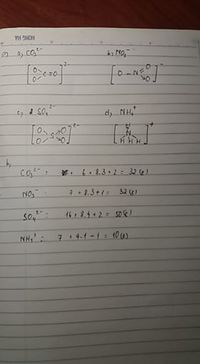 HONG HA
a, CO₃²⁻ b, NO₃⁻
[O O C=O]²⁻ [O - N O O]⁻
c, SO₄²⁻ d, NH₄⁺
[O O S O O]²⁻ [H N H H H]⁺
b,
CO₃²⁻ : 6 + 8.3 + 2 = 32 (e)
NO₃⁻ : 7 + 8.3 + 1 = 32 (e)
SO₄²⁻ : 16 + 8.4 + 2 = 50 (e)
NH₄⁺ : 7 + 4.1 - 1 = 10 (e)